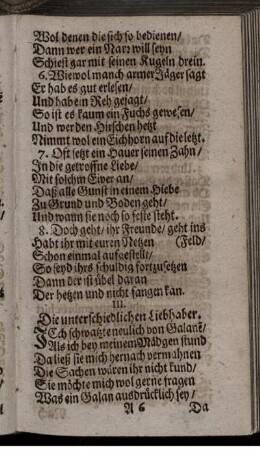 Wol denen die sich so bedienen/
Dann wer ein Narr will seyn
Schiest gar mit seinen Kugeln drein.
6. Wiewol manch armer Jäger sagt
Er hab es gut erlesen/
Und habe ein Reh gejagt/
So ist es kaum ein Fuchs gewesen/
Und wer den Hirschen hetzt
Nimmt wol ein Eichhorn auf die letzt.
7. Oft setzt ein Hauer seinen Zahn/
In die getroffne Liebe/
Mit solchem Eiver an/
Daß alle Gunst in einem Hiebe
Zu Grund und Boden geht/
Und wann sie noch so feste steht.
8. Doch geht/ ihr Freunde/ geht ins
Habt ihr mit euren Netzen (Feld/
Schon einmal aufgestellt/
So seyd ihrs schuldig fortzusetzen
Dann der ist übel daran
Der hetzen und nicht fangen kan.
III.
Die unterschiedlichen Liebhaber.
ICh schwatzte neulich von Galant/
Als ich bey meinem Mädgen stund
Da ließ sie mich hernach vermahnen
Die Sachen wären ihr nicht kund/
Sie möchte mich wol gerne fragen
Was ein Galan ausdrücklich sey/
A 6 Da